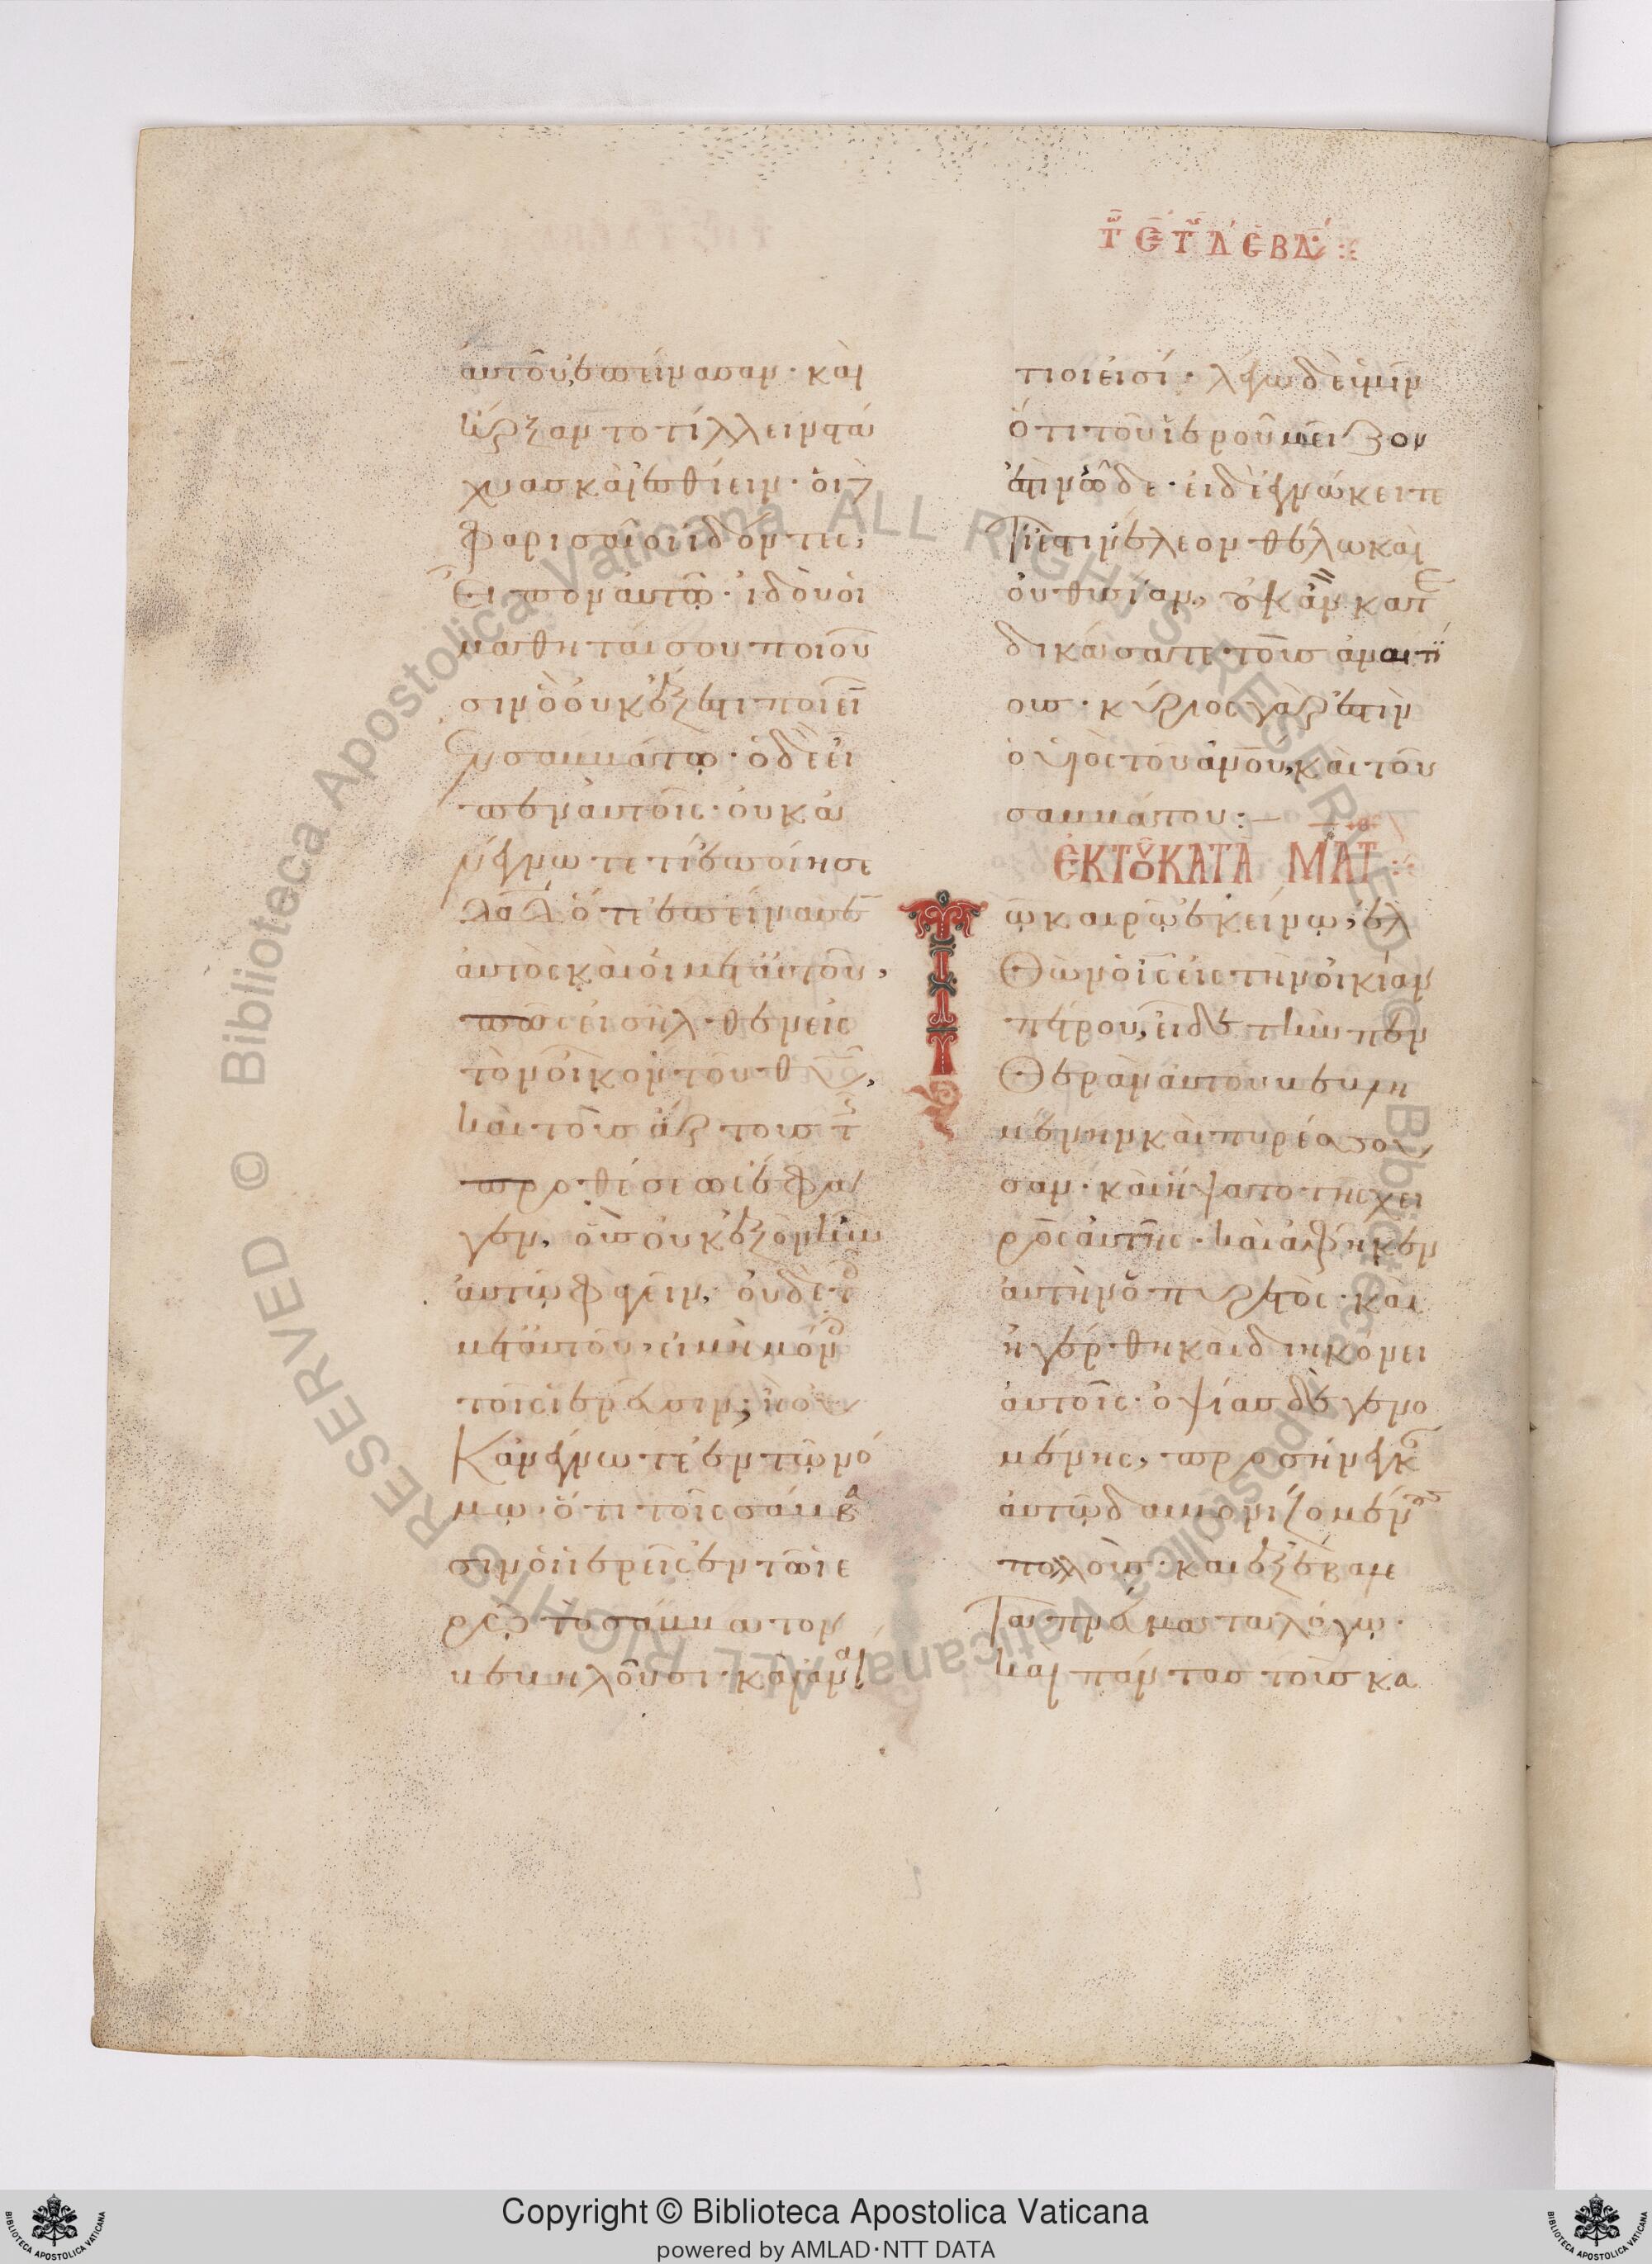 τῇ ε̄ τῆς δ ἑβδ :
αὐτοῦ ἐπείνασαν · καὶ
ἤρξαντο τίλλειν στά
χυας καὶ ἐσθίειν · οἱ δὲ
φαρισαῖοι ἰδόντες,
εἶπον αὐτῷ · ἰδοὺ οἱ
μαθηταί σου ποιοῦ
σιν ὃ οὐκ ἔξεστι ποιεῖν
ἐν σαββάτῳ · ὁ δὲ εἶ
πεν αὐτοῖς · οὐκ ἀ
νέγνωτε τί ἐποίησε
δαδ ὅτε ἐπείνασεν
αὐτὸς καὶ οἱ μετ' αὐτοῦ,
πῶς εἰσῆλθεν εἰς
τὸν οἶκον τοῦ θυ,
καὶ τοὺς ἄρτους τῆς
προθέσεως ἔφα
γεν, οὓς οὐκ ἐξὸν ἦν
αὐτῷ φαγεῖν, οὐδὲ τοῖς
μετ' αὐτοῦ, εἰ μὴ μόνοις
τοῖς ἱερεῦσιν; ἢ οὐκ
ἀνέγνωτε ἐν τῷ νό
μῳ · ὅτι τοῖς σάββα
σιν οἱ ἱερεῖς ἐν τῷ ἱε
ρῷ τὸ σάββατον
βεβηλοῦσι · καὶ ἀναί
τιοί εἰσί · λέγω δὲ ὑμῖν
ὅτι τοῦ ἱεροῦ μεῖζον
ἐστὶν ὧδε · εἰ δὲ ἐγνώκειτε
τί ἐστιν ἔλεον θέλω καὶ
οὐ θυσίαν, οὐκ ἂν κατε
δικάσατε τοὺς ἀναιτί
ους · κύριος γάρ ἐστιν
ὁ υἱὸς τοῦ ἀνου, καὶ τοῦ
σαββάτου :–
ἘΚ ΤΟΥ ΚΑΤΑ ΜΑΤ :
Τῷ καιρῷ ἐκείνῳ, ἐλ
θὼν ὁ ις εἰς τὴν οἰκίαν
πέτρου, εἶδε τὴν πεν
θερὰν αὐτοῦ βεβλη
μένην καὶ πυρέσσου
σαν · καὶ ἥψατο τῆς χει
ρὸς αὐτῆς · καὶ ἀφῆκεν
αὐτὴν ὁ πυρετός · καὶ
ἠγέρθη καὶ διηκόνει
αὐτοῖς · ὀψίας δὲ γενο
μένης, προσήνεγκαν
αὐτῷ δαιμονιζομένους
πολλούς · καὶ ἐξέβαλε
τὰ πνατα λόγῳ ·
καὶ πάντας τοὺς κα
Copyright © Biblioteca Apostolica Vaticana
powered by AMLAD·NTT DATA
© Biblioteca Apostolica Vaticana ALL RIGHTS RESERVED